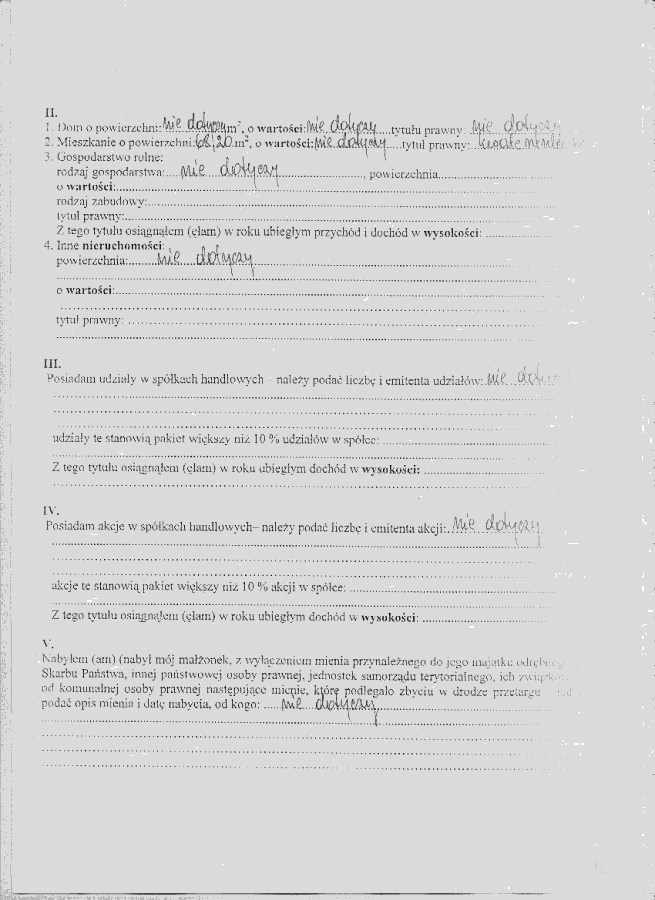 II.
1. Dom o powierzchni: nie dotyczy m², o wartości: nie dotyczy tytułu prawny: nie dotyczy
2. Mieszkanie o powierzchni: 68,20 m², o wartości: nie dotyczy tytuł prawny:
3. Gospodarstwo rolne:
rodzaj gospodarstwa: nie dotyczy, powierzchnia
o wartości:
rodzaj zabudowy:
tytuł prawny:
Z tego tytułu osiągnąłem (ęłam) w roku ubiegłym przychód i dochód w wysokości:
4. Inne nieruchomości:
powierzchnia: nie dotyczy
o wartości:
tytuł prawny:
III.
Posiadam udziały w spółkach handlowych - należy podać liczbę i emitenta udziałów: nie
udziały te stanowią pakiet większy niż 10 % udziałów w spółce:
Z tego tytułu osiągnąłem (ęłam) w roku ubiegłym dochód w wysokości:
IV.
Posiadam akcje w spółkach handlowych– należy podać liczbę i emitenta akcji: nie dotyczy
akcje te stanowią pakiet większy niż 10 % akcji w spółce:
Z tego tytułu osiągnąłem (ęłam) w roku ubiegłym dochód w wysokości:
V.
Nabyłem (am) (nabył mój małżonek, z wyłączeniem mienia przynależnego do jego majątku
Skarbu Państwa, innej państwowej osoby prawnej, jednostek samorządu terytorialnego, ich
od komunalnej osoby prawnej następujące mienie, które podlegało zbyciu w drodze przetargu
podać opis mienia i datę nabycia, od kogo: nie dotyczy